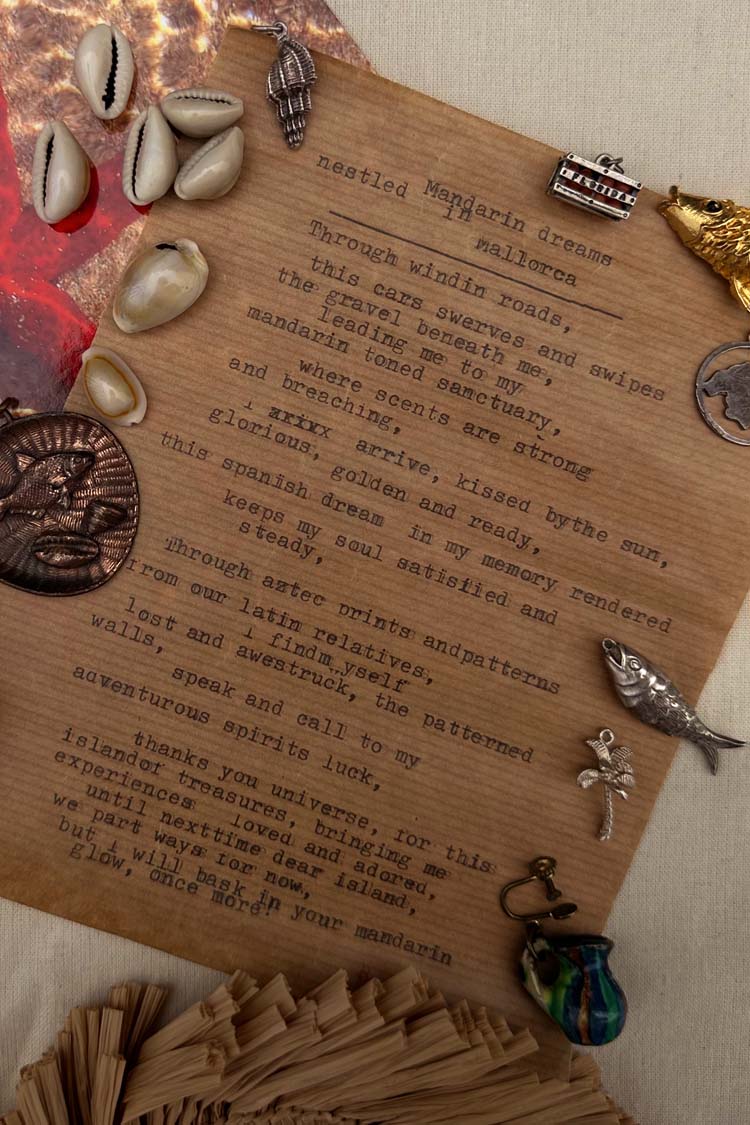 nestled Mandarin dreams
in Mallorca
Through windin roads,
this cars swerves and swipes
the gravel beneath me,
leading me to my
mandarin toned sanctuary,
where scents are strong
and breaching,
i arrive, kissed bythe sun,
glorious, golden and ready,
this spanish dream in my memory rendered
keeps my soul satisfied and
steady,
Through aztec prints andpatterns
from our latin relatives,
i findm yself
lost and awestruck, the patterned
walls,
speak and call to my
adventurous spirits luck,
thanks you universe, for this
islandof treasures, bringing me
experiences loved and adored,
until nexttime dear island,
we part ways for now,
but i will bask in your mandarin
glow, once more!
FLORIDA